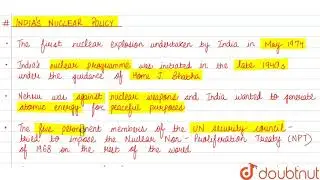 # INDIA'S NUCLEAR POLICY
• The first nuclear explosion undertaken by India in May 1974
• India's nuclear programme was initiated in the late 1940s
under the guidance of Homi J. Bhabha
• Nehru was against nuclear weapons and India wanted to generate
atomic energy for peaceful purposes
• The five permanent members of the UN security council
tried to impose the Nuclear Non-Proliferation Treaty (NPT)
of 1968 on the rest of the world
doubtnut